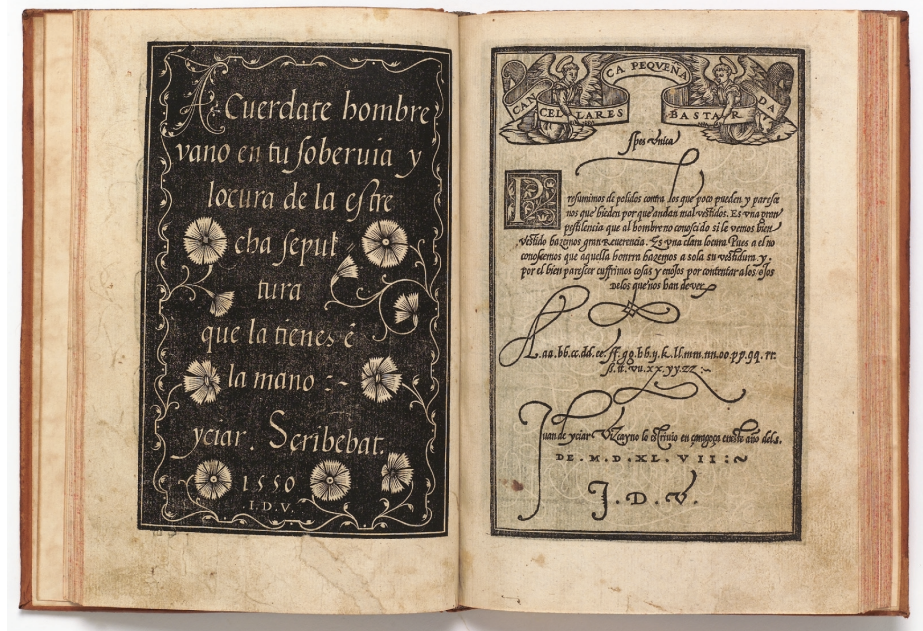 ACuerdate hombre
vano en tu soberuia y
locura de la estre
cha sepult
tura
que la tienes ē
la mano :~
yciar. Scribebat.
1550
.I.D.V.
CANCELLARESCA PEQVEÑA BASTARDA
Spes vnica
Presuminos de polidos contra los que poco pueden y paresce
nos que hieden por que andan mal vestidos. Es vna gran
pestilencia que al hombre no conoscido si le vemos bien
vestido hazemos gran Reuerencia. Es vna clara locura Pues a el no
conoscemos que aquella honrra hazemos a sola su vestidura. y.
por el bien parescer cuffrimos cosas y enojos por contentar a los ojos
de los que nos han de ver
A.aa.bb.cc.dd.ee.ff.gg.hh.y.k.ll.mm.nn.oo.pp.qq.rr.
ss.tt.vu.xx.yy.zz :~
Juan de yciar Vizcayno lo escriuio en çaragoça en este año del.s.
DE . M . D . XL . VII :~
I . D . V .